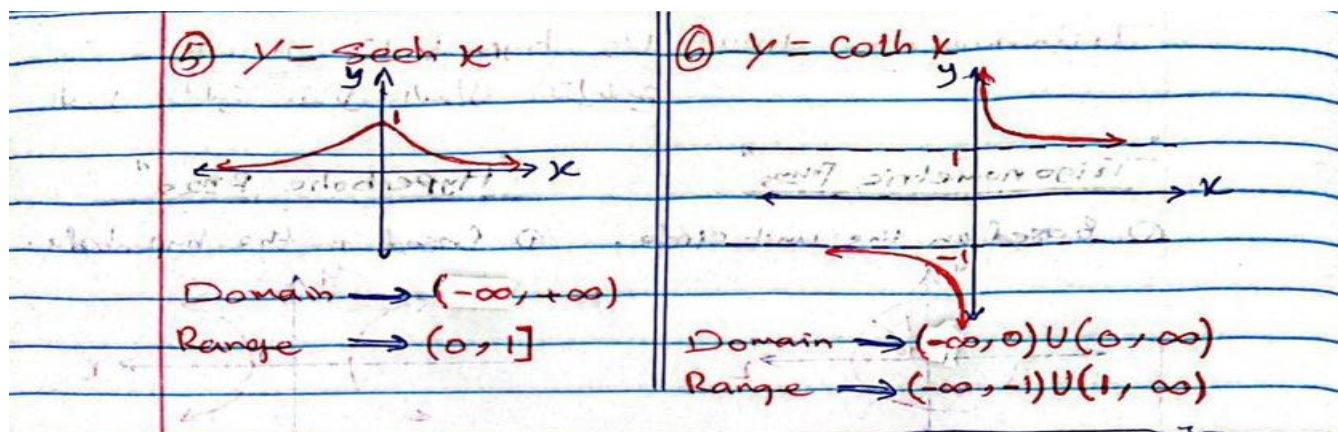 ⑤ y = Sech x
y
1
x
Domain → (-∞, +∞)
Range ⇒ (0, 1]
⑥ y = Coth x
y
1
x
-1
Domain → (-∞, 0) U (0, ∞)
Range ⇒ (-∞, -1) U (1, ∞)